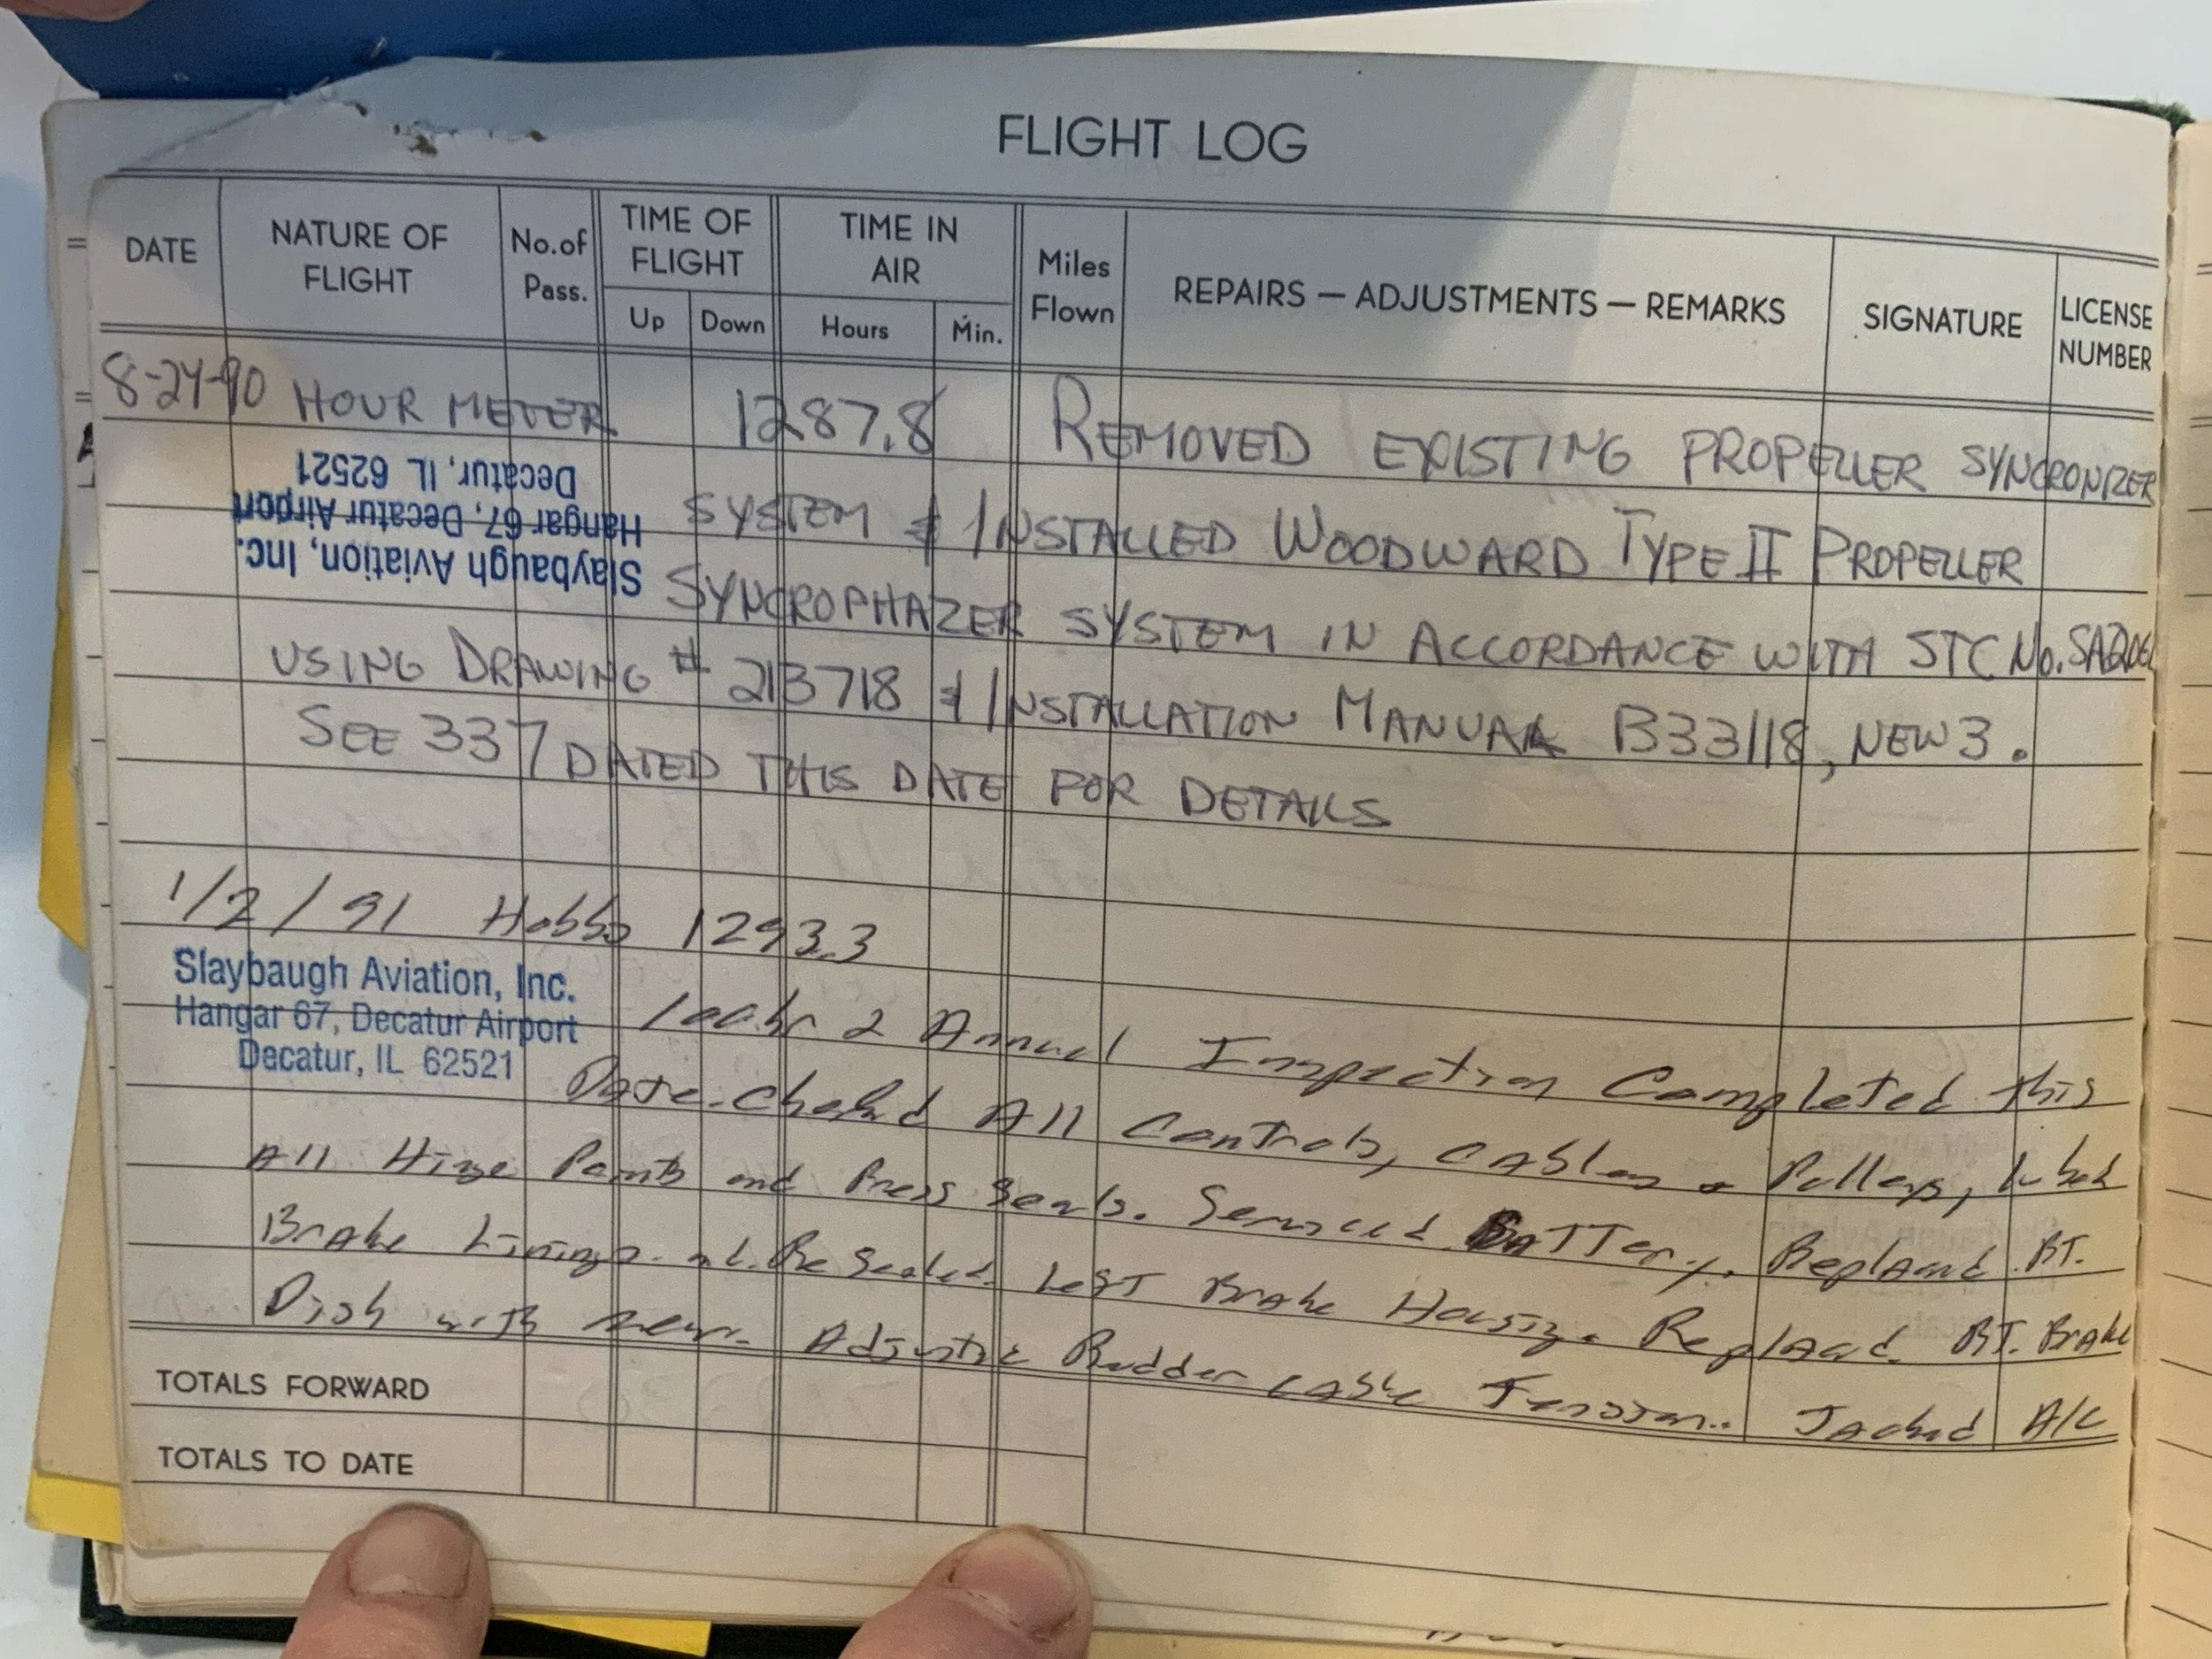 FLIGHT LOG
DATE NATURE OF FLIGHT No.of Pass. TIME OF FLIGHT Up Down TIME IN AIR Hours Min. Miles Flown REPAIRS — ADJUSTMENTS — REMARKS SIGNATURE LICENSE NUMBER
8-24-90 HOUR METER 1287.8 REMOVED EXISTING PROPELLER SYNCRONIZER
Slaybaugh Aviation, Inc.
Hangar 67, Decatur Airport
Decatur, IL 62521
SYSTEM & INSTALLED WOODWARD TYPE II PROPELLER
SYNCROPHAZER SYSTEM IN ACCORDANCE WITH STC No.
USING DRAWING # 213718 & INSTALLATION MANUAL B33118, NEW 3.
SEE 337 DATED THIS DATE FOR DETAILS
1/2/91 Hobbs 1293.3
Slaybaugh Aviation, Inc.
Hangar 67, Decatur Airport
Decatur, IL 62521
100hr & Annual Inspection Completed this
Date. Checked All Controls, Cables & Pulleys, lubed
All Hinge Points and Press Seals. Serviced Battery. Replaced RT.
Brake Linings and Resealed Left Brake Housing. Replaced RT. Brake
Disk with new. Adjusted Rudder Cable Tension. Jacked A/C
TOTALS FORWARD
TOTALS TO DATE